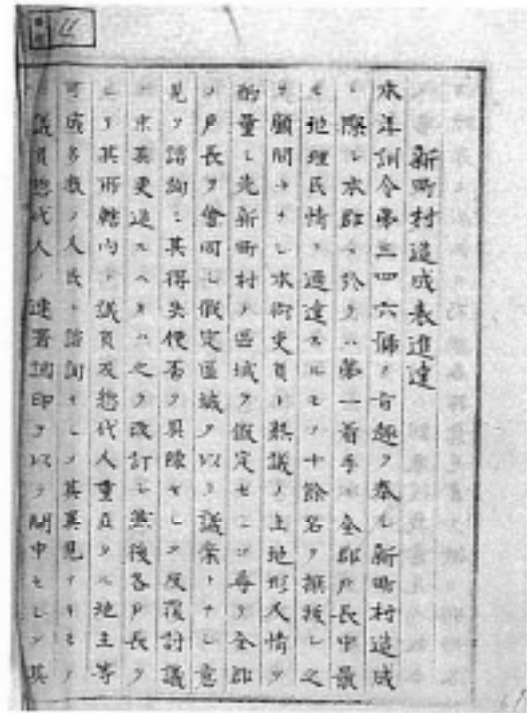 新町村造成表進達
本年訓令第三四六號ノ旨趣ヲ奉シ新町村造成
際シ本郡ニ於テハ第一着手ニ全郡戸長中最
地理民情ニ通達スルモノ十餘名ヲ撰抜シ之
顧問トナシ本衙吏員ト熟議ノ上地形人情ヲ
酌量シ先新町村ノ區域ヲ假定セシ尋テ全郡
戸長ヲ會同シ假定區域ヲ以テ議案トナシ意
見ヲ諮詢シ其得失便否ヲ具陳セシメ反復討議
末其更逞スヘキハ之ヲ改訂シ然後各戸長ヲ
其所轄内ノ議員及惣代人重立タル地主等
可成多数ノ人民ニ諮詢セシメ其異見ナキモノ
議員惣代人ノ連署調印ヲ以テ開申セシメ其